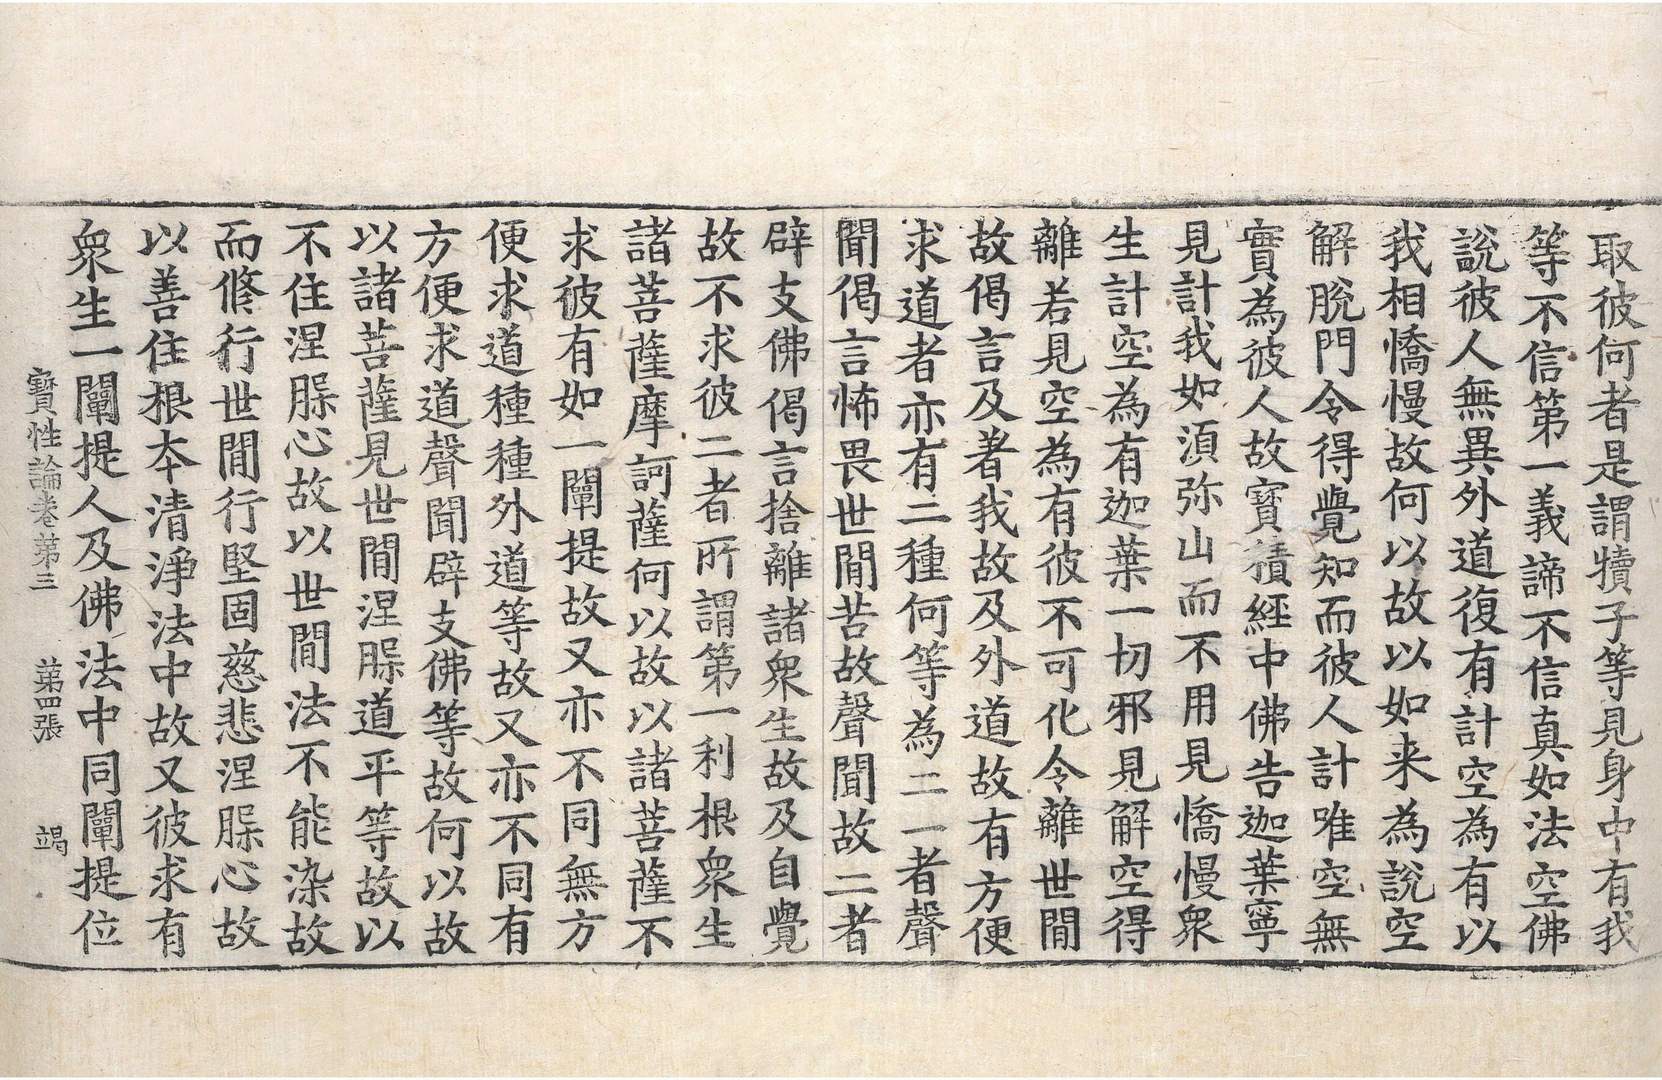 取彼何者是謂犢子等見身中有我
等不信第一義諦不信真如法空佛
說彼人無異外道復有計空為有以
我相憍慢故何以故以如来為說空
解脫門令得覺知而彼人計唯空無
實為彼人故寶積經中佛告迦葉寧
見計我如湏弥山而不用見憍慢衆
生計空為有迦葉一切邪見解空得
離若見空為有彼不可化令離世間
故偈言及著我故及外道故有方便
求道者亦有二種何等為二一者聲
聞偈言怖畏世間苦故聲聞故二者
辟支佛偈言捨離諸衆生故及自覺
故不求彼二者所謂第一利根衆生
諸菩薩摩訶薩何以故以諸菩薩不
求彼有如一闡提故又亦不同無方
便求道種種外道等故又亦不同有
方便求道聲聞辟支佛等故何以故
以諸菩薩見世間涅槃道平等故以
不住涅槃心故以世間法不能染故
而修行世間行堅固慈悲涅槃心故
以善住根本清淨法中故又彼求有
衆生一闡提人及佛法中同闡提位
寶性論卷第三　第四張　竭